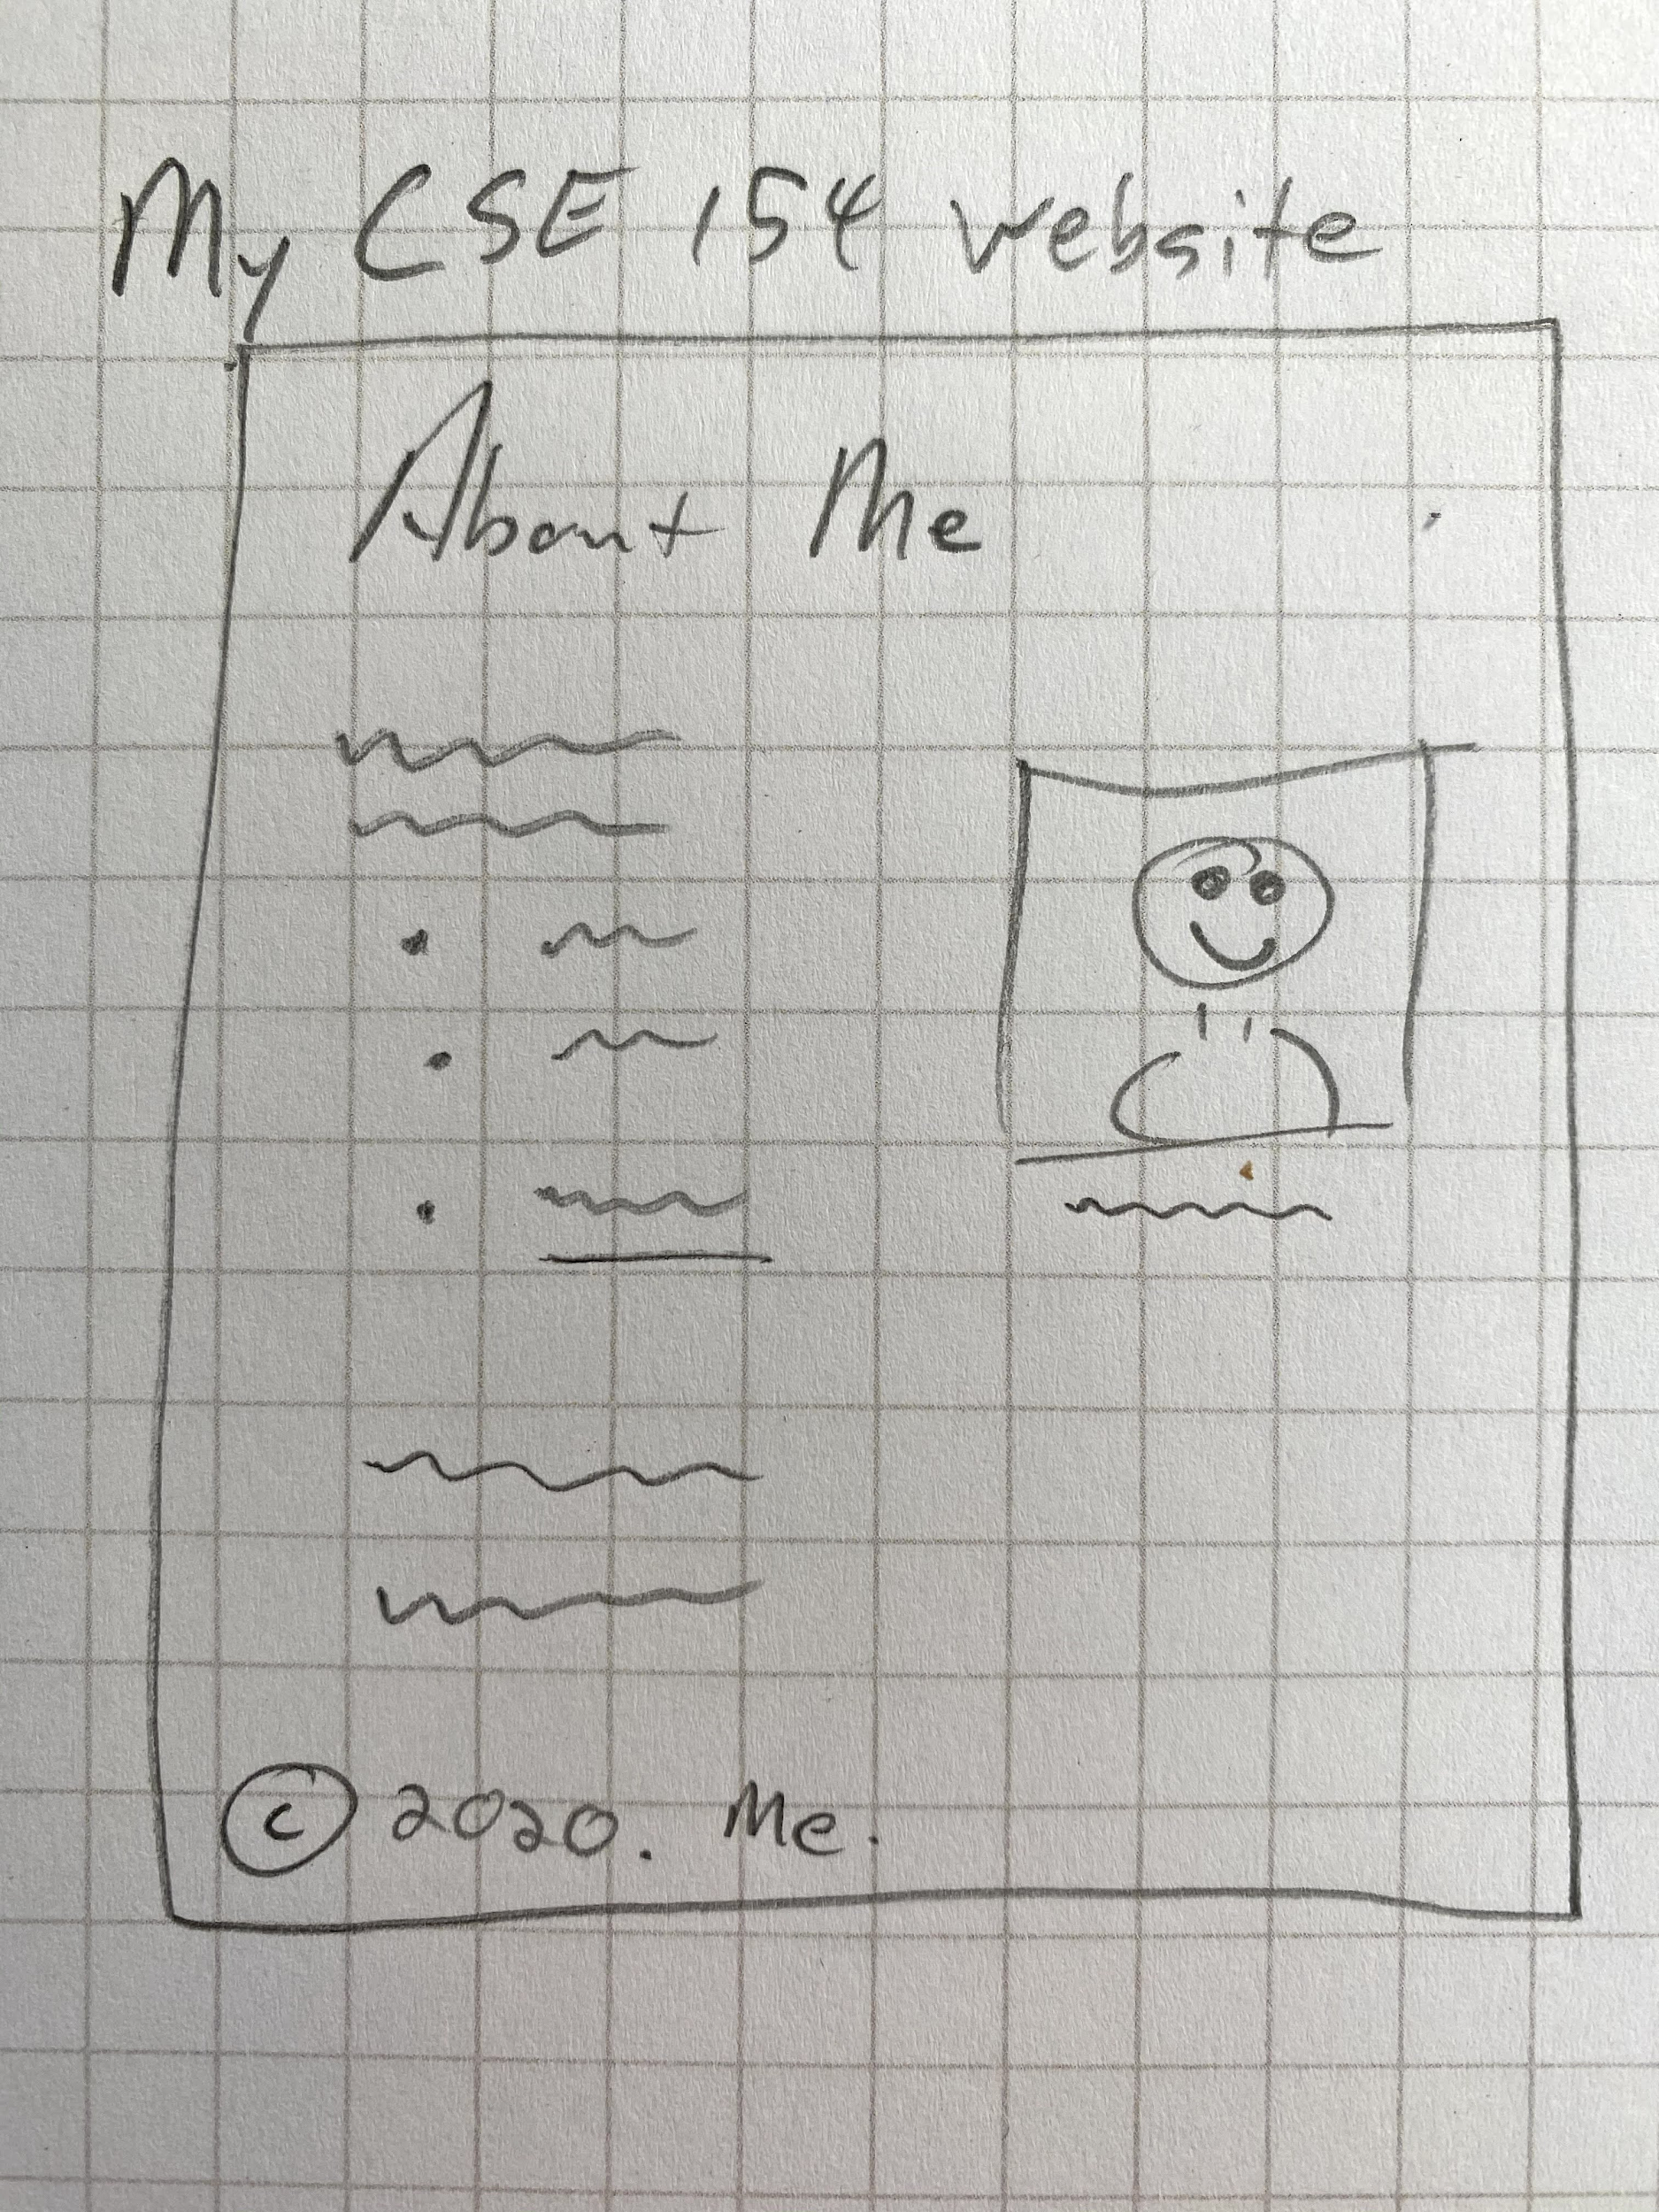 My CSE 154 website
About Me
© 2020. Me.